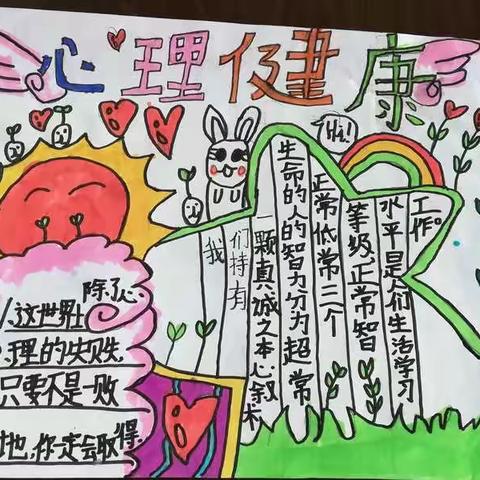 心理健康
Hi!
我
们持有
一颗真诚之本心叙术
生命的人的智力分为超常
正常低常三个
等级正常智
水平是人们生活学习
工作。
这世上除了心
理的失败,
只要不是一败
地,你一定会取得.